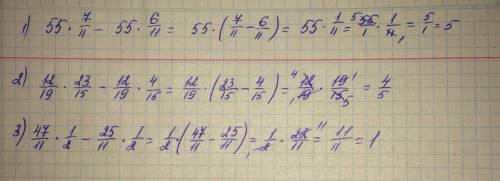 1) 55 · 7/11 − 55 · 6/11 = 55 · (7/11 − 6/11) = 55 · 1/11 = 55/1 · 1/11 = 5/1 = 5
2) 12/19 · 23/15 − 12/19 · 4/15 = 12/19 · (23/15 − 4/15) = 12/19 · 19/15 = 4/5
3) 47/11 · 1/2 − 25/11 · 1/2 = 1/2 · (47/11 − 25/11) = 1/2 · 22/11 = 11/11 = 1